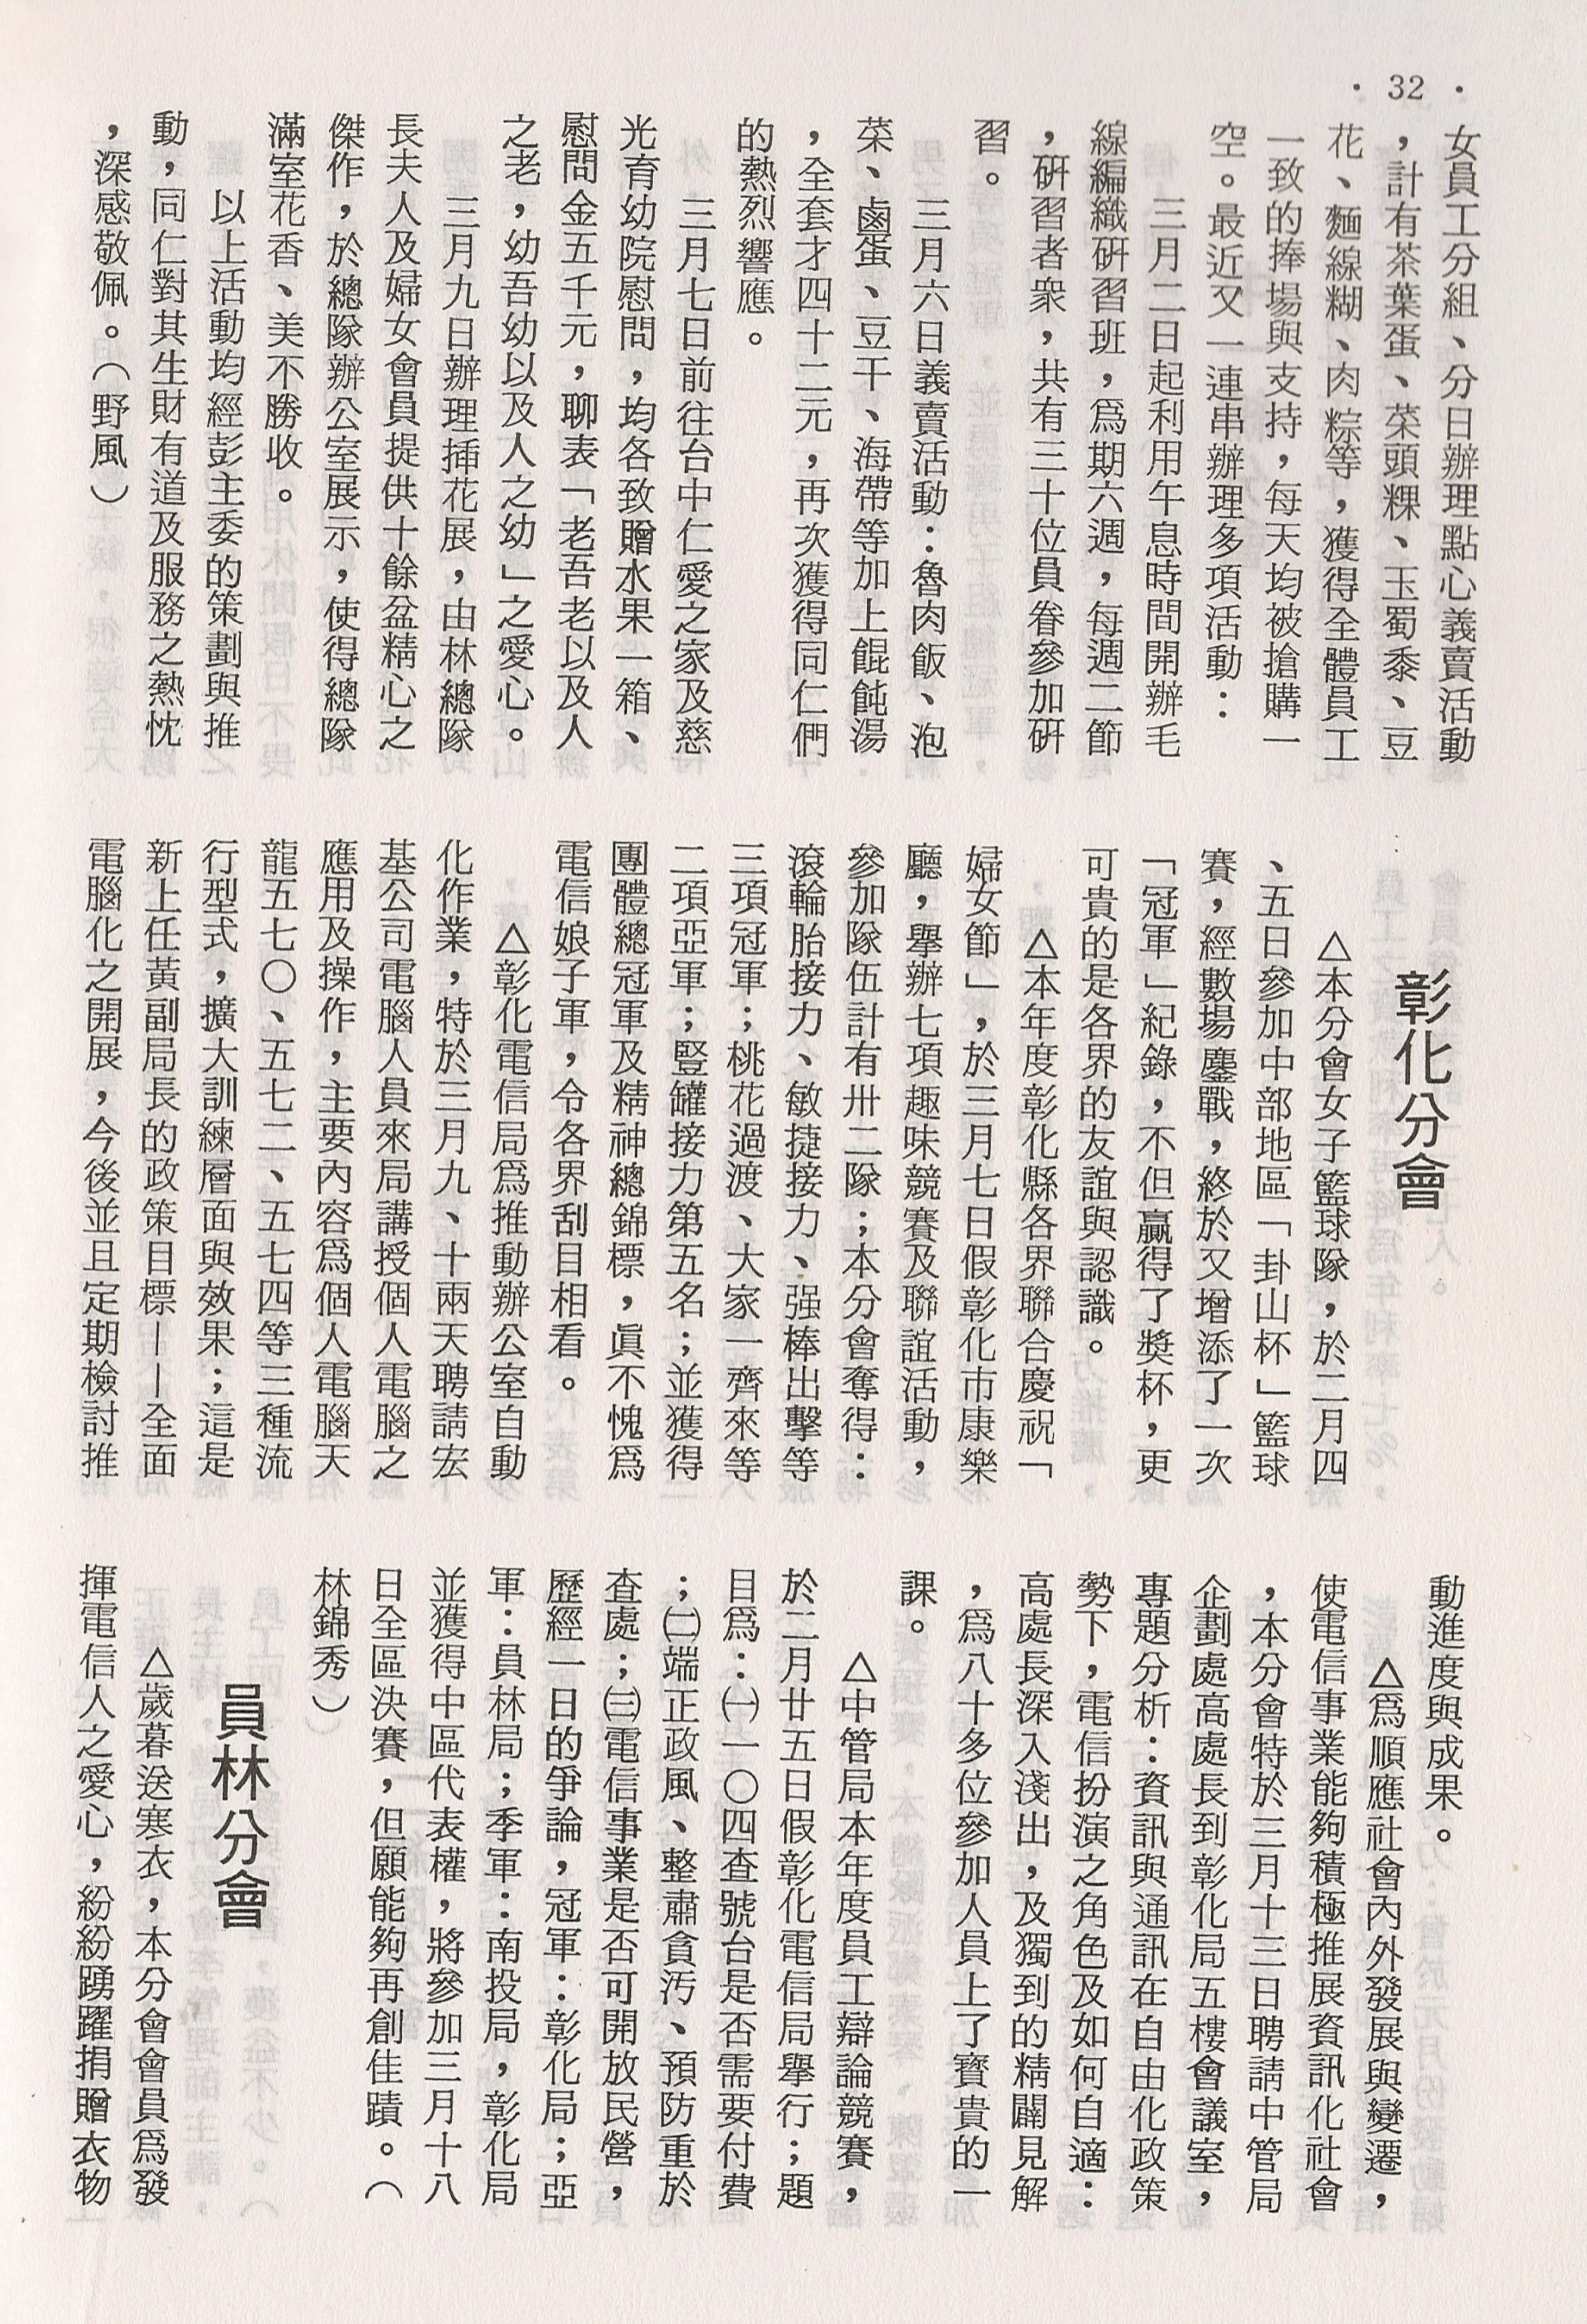 · 32 ·
女員工分組、分日辦理點心義賣活動
，計有茶葉蛋、菜頭粿、玉蜀黍、豆
花、麵線糊、肉粽等，獲得全體員工
一致的捧場與支持，每天均被搶購一
空。最近又一連串辦理多項活動：
三月二日起利用午息時間開辦毛
線編織硏習班，爲期六週，每週二節
，硏習者衆，共有三十位員眷參加硏
習。
三月六日義賣活動：魯肉飯、泡
菜、鹵蛋、豆干、海帶等加上餛飩湯
，全套才四十二元，再次獲得同仁們
的熱烈響應。
三月七日前往台中仁愛之家及慈
光育幼院慰問，均各致贈水果一箱、
慰問金五千元，聊表「老吾老以及人
之老，幼吾幼以及人之幼」之愛心。
三月九日辦理揷花展，由林總隊
長夫人及婦女會員提供十餘盆精心之
傑作，於總隊辦公室展示，使得總隊
滿室花香、美不勝收。
以上活動均經彭主委的策劃與推
動，同仁對其生財有道及服務之熱忱
，深感敬佩。（野風）
彰化分會
△本分會女子籃球隊，於二月四
、五日參加中部地區「卦山杯」籃球
賽，經數場鏖戰，終於又增添了一次
「冠軍」紀錄，不但贏得了獎杯，更
可貴的是各界的友誼與認識。
△本年度彰化縣各界聯合慶祝「
婦女節」，於三月七日假彰化市康樂
廳，舉辦七項趣味競賽及聯誼活動，
參加隊伍計有卅二隊；本分會奪得：
滾輪胎接力、敏捷接力、强棒出擊等
三項冠軍；桃花過渡、大家一齊來等
二項亞軍；豎罐接力第五名；並獲得
團體總冠軍及精神總錦標，眞不愧爲
電信娘子軍，令各界刮目相看。
△彰化電信局爲推動辦公室自動
化作業，特於三月九、十兩天聘請宏
基公司電腦人員來局講授個人電腦之
應用及操作，主要內容爲個人電腦天
龍五七〇、五七二、五七四等三種流
行型式，擴大訓練層面與效果；這是
新上任黃副局長的政策目標——全面
電腦化之開展，今後並且定期檢討推
動進度與成果。
△爲順應社會內外發展與變遷，
使電信事業能夠積極推展資訊化社會
，本分會特於三月十三日聘請中管局
企劃處高處長到彰化局五樓會議室，
專題分析：資訊與通訊在自由化政策
勢下，電信扮演之角色及如何自適：
高處長深入淺出，及獨到的精闢見解
，爲八十多位參加人員上了寶貴的一
課。
△中管局本年度員工辯論競賽，
於二月廿五日假彰化電信局舉行；題
目爲：㈠一〇四查號台是否需要付費
；㈡端正政風、整肅貪汚、預防重於
查處；㈢電信事業是否可開放民營，
歷經一日的爭論，冠軍：彰化局；亞
軍：員林局；季軍：南投局，彰化局
並獲得中區代表權，將參加三月十八
日全區決賽，但願能夠再創佳蹟。（
林錦秀）
員林分會
△歲暮送寒衣，本分會會員爲發
揮電信人之愛心，紛紛踴躍捐贈衣物